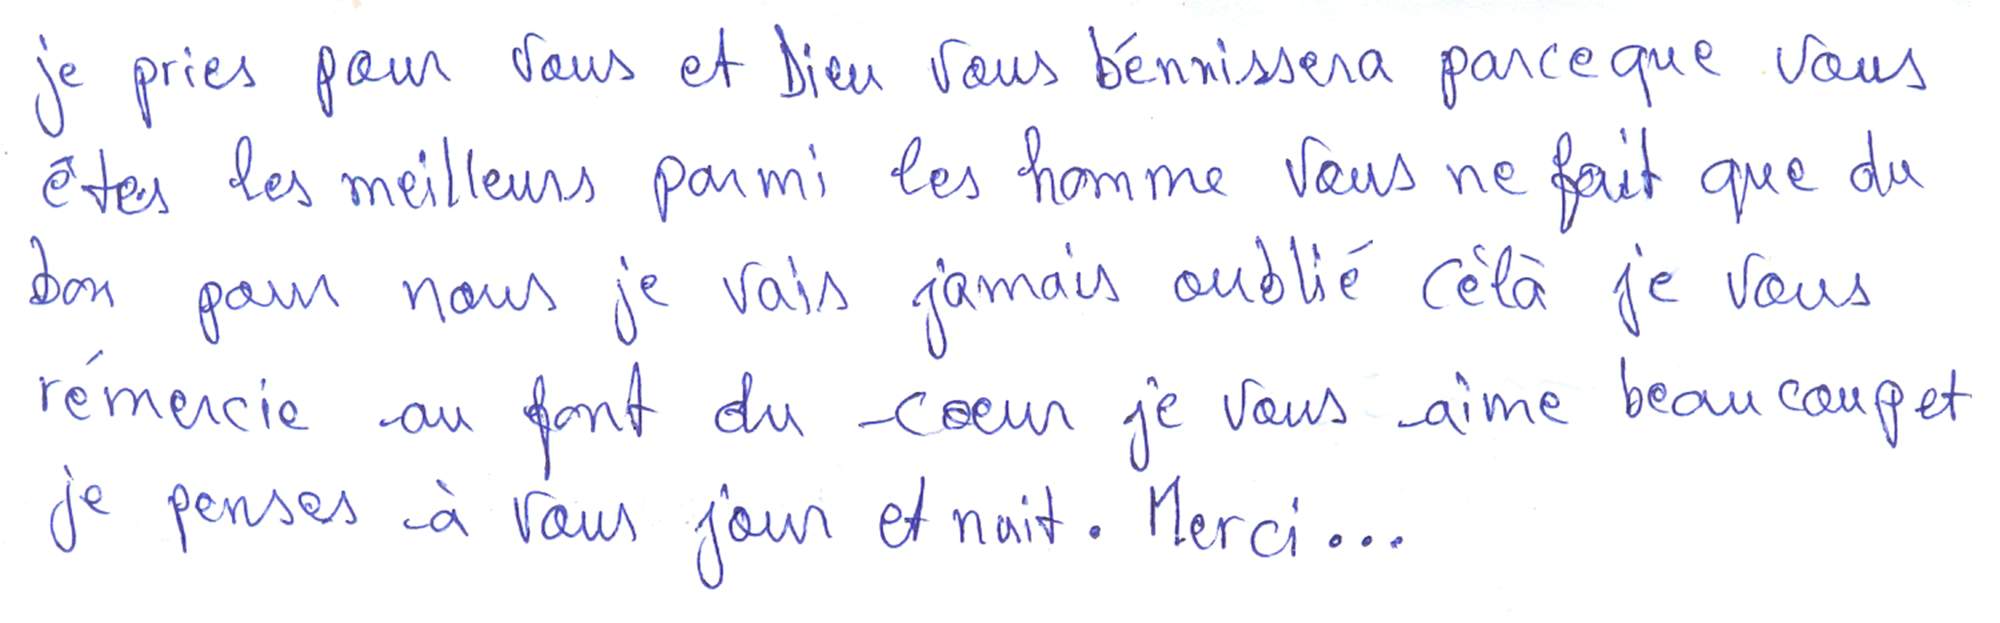 je pries pour vous et Dieu vous bénnissera parceque vous
êtes les meilleurs parmi les homme vous ne fait que du
bon pour nous je vais jamais oublié célà je vous
rémercie au font du coeur je vous aime beaucoup et
je penses à vous jour et nuit. Merci...